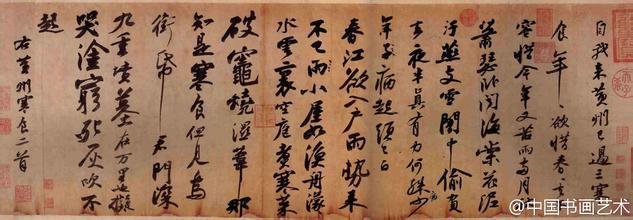 自我來黃州已過三寒
食年〻欲惜春〻去不
容惜今年又苦雨兩月秋
蕭瑟卧聞海棠花泥
汙燕支雪闇中偷負
去夜半真有力何殊少
年子病起頭已白
春江欲入戶雨勢來
不已雨小屋如漁舟濛〻
水雲裏空庖煮寒菜
破竈燒濕葦那
知是寒食但見烏
銜帋君門深
九重墳墓在万里也擬
哭塗窮死灰吹不
起
右黃州寒食二首
@中国书画艺术